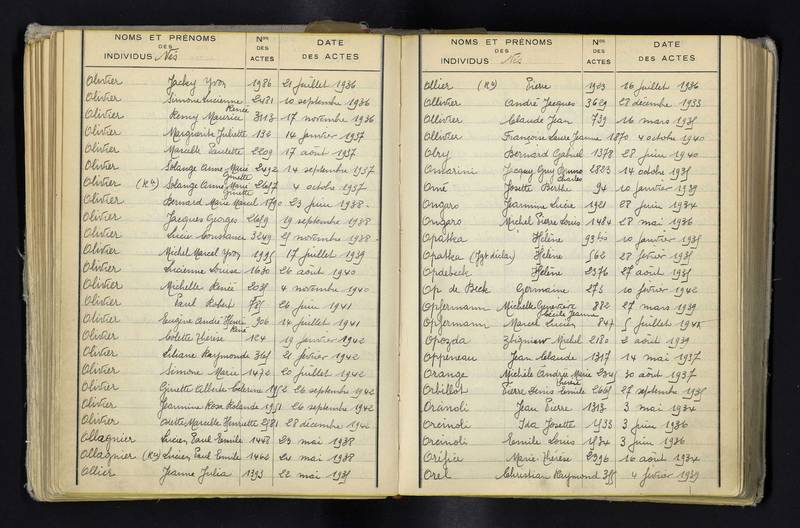 NOMS ET PRÉNOMS DES INDIVIDUS Nés
Nos DES ACTES
DATE DES ACTES
Olivier Jacky Yvon 1986 21 juillet 1936
Olivier Simone Lucienne Renée 2481 10 septembre 1936
Olivier Remy Maurice 3113 17 novembre 1936
Olivier Marguerite Juliette 136 14 janvier 1937
Olivier Marcelle Paulette 2209 17 août 1937
Olivier Solange Anne Marie Ginette 2492 14 septembre 1937
Olivier (Rte) Solange Anne Marie Ginette 2647 4 octobre 1937
Olivier Bernard Marie Marcel 1790 23 juin 1938
Olivier Jacques Georges 2619 19 septembre 1938
Olivier Lucie Constance 3249 21 novembre 1938
Olivier Michel Marcel Yvon 1995 17 juillet 1939
Olivier Lucienne Louise 1630 26 août 1940
Olivier Michelle Renée 2031 4 novembre 1940
Olivier Paul Robert 785 26 juin 1941
Olivier Eugène André Henri René 906 14 juillet 1941
Olivier Colette Thérèse 104 19 janvier 1942
Olivier Liliane Raymonde 365 21 février 1942
Olivier Simone Marie 1472 20 juillet 1942
Olivier Ginette Alberte 1952 26 septembre 1942
Olivier Jeannine Rose Rolande 1951 26 septembre 1942
Olivier Odette Marcelle Henriette 2581 28 décembre 1942
Ollagnier Lucien Paul Emile 1448 23 mai 1938
Ollagnier (Rte) Lucien Paul Emile 1462 24 mai 1938
Ollier Jeanne Julia 1393 22 mai 1935
NOMS ET PRÉNOMS DES INDIVIDUS Nés
Nos DES ACTES
DATE DES ACTES
Ollier (Rte) Pierre 1903 16 juillet 1936
Ollivier André Jacques 3629 28 décembre 1933
Ollivier Claude Jean 739 16 mars 1935
Ollivier Françoise Laure Jeanne 1870 4 octobre 1940
Olry Bernard Gabriel 1378 28 juin 1940
Omarini Jacques Guy Bruno Charles 2823 14 octobre 1935
Omé Josette Berthe 94 10 janvier 1939
Ongaro Jeannine Lucie 1921 28 juin 1934
Ongaro Michel Pierre Louis 1484 28 mai 1936
Opatka Hélène 93bis 10 janvier 1935
Opatka (Jgt déclar) Hélène 562 28 février 1935
Opaebeck Hélène 2376 27 août 1935
Op de Beck Germaine 273 10 février 1942
Opfermann Michelle Geneviève Cécile Jeanne 882 27 mars 1939
Opfermann Marcel Lucien 847 5 juillet 1941
Opozda Zbigniew Michel 2180 2 août 1939
Oppeneau Jean Claude 1317 14 mai 1937
Orange Michèle Andrée Marie Thérèse 2341 30 août 1937
Orbillot Pierre Denis Emile 2661 27 septembre 1935
Orcinoli Jean Pierre 1313 3 mai 1934
Orcinoli Ida Josette 1533 3 juin 1936
Orcinoli Emile Louis 1534 3 juin 1936
Orifice Marie Thérèse 2396 16 août 1934
Orel Christian Raymond 355 4 février 1939